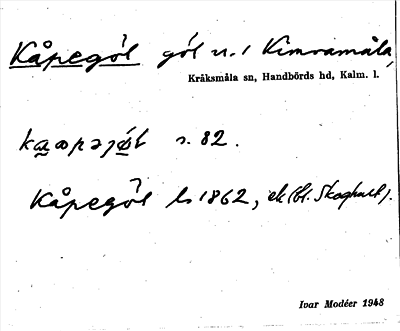 Kåpegöl göl n. i Kimramåla,
Kråksmåla sn, Handbörds hd, Kalm. l.
s. 82.
Kåpegöl ls 1862, ek (bl. Skogharl).
Ivar Modéer 1948